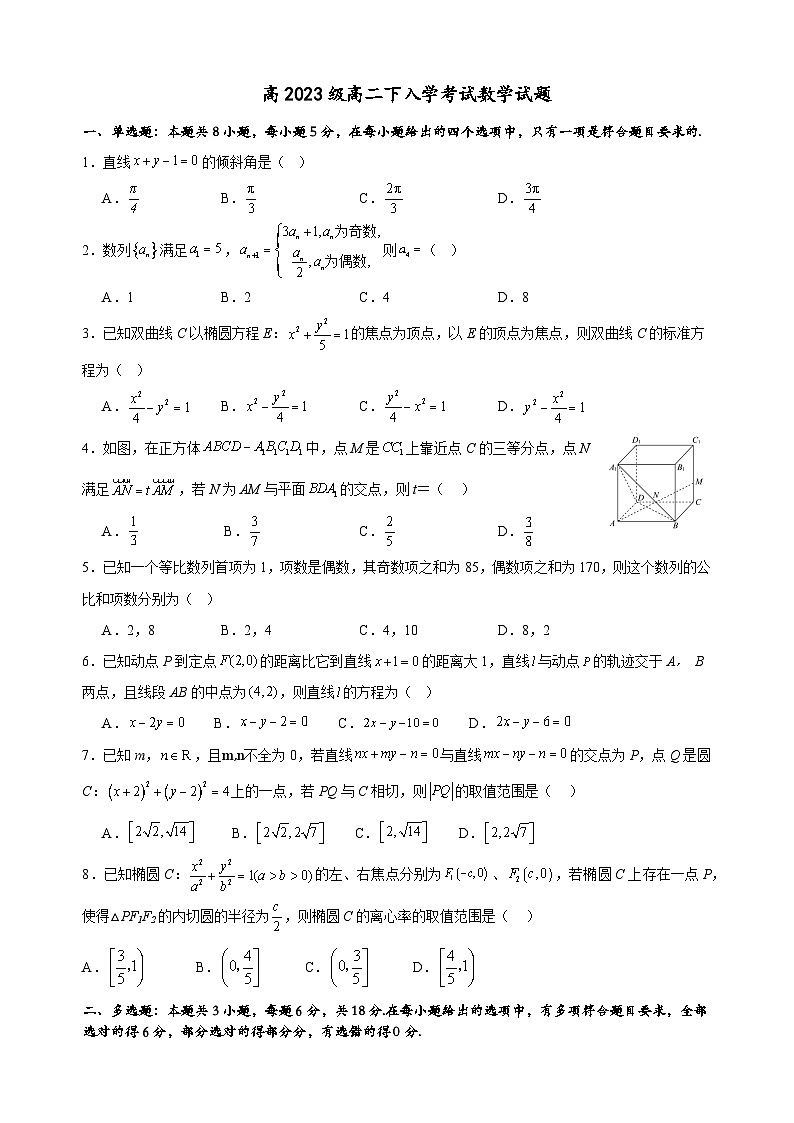 高2023级高二下入学考试数学试题
一、单选题：本题共8小题，每小题5分，在每小题给出的四个选项中，只有一项是符合题目要求的.
1．直线 x + y − 1 = 0 的倾斜角是（ ）
A．π/4 B．π/3 C．2π/3 D．3π/4
2．数列{aₙ}满足 a₁ = 5，aₙ₊₁ = { 3aₙ + 1, aₙ为奇数, aₙ/2, aₙ为偶数, 则 a₄ =（ ）
A．1 B．2 C．4 D．8
3．已知双曲线 C 以椭圆方程 E：x² + y²/5 = 1的焦点为顶点，以 E 的顶点为焦点，则双曲线 C 的标准方
程为（ ）
A．x²/4 − y² = 1 B．x² − y²/4 = 1 C．y²/4 − x² = 1 D．y² − x²/4 = 1
4．如图，在正方体 ABCD − A₁B₁C₁D₁ 中，点 M 是 CC₁ 上靠近点 C 的三等分点，点 N
满足 AN = t AM，若 N 为 AM 与平面 BDA₁ 的交点，则 t＝（ ）
A．1/3 B．3/7 C．2/5 D．3/8
D₁ C₁
A₁ B₁
M
D N C
A B
5．已知一个等比数列首项为1，项数是偶数，其奇数项之和为85，偶数项之和为170，则这个数列的公
比和项数分别为（ ）
A．2，8 B．2，4 C．4，10 D．8，2
6．已知动点 P 到定点 F(2,0) 的距离比它到直线 x + 1 = 0 的距离大1，直线 l 与动点 P 的轨迹交于 A， B
两点，且线段 AB 的中点为 (4,2)，则直线 l 的方程为（ ）
A．x − 2y = 0 B．x − y − 2 = 0 C．2x − y − 10 = 0 D．2x − y − 6 = 0
7．已知 m，n ∈ R，且m,n不全为0，若直线 nx + my − n = 0 与直线 mx − ny − n = 0 的交点为 P，点 Q 是圆
C：(x + 2)² + (y − 2)² = 4 上的一点，若 PQ 与 C 相切，则 |PQ| 的取值范围是（ ）
A．[2√2, √14] B．[2√2, 2√7] C．[2, √14] D．[2, 2√7]
8．已知椭圆 C：x²/a² + y²/b² = 1(a > b > 0) 的左、右焦点分别为 F₁(−c,0)、F₂(c,0)，若椭圆 C 上存在一点 P，
使得△PF₁F₂ 的内切圆的半径为 c/2，则椭圆 C 的离心率的取值范围是（ ）
A．[3/5, 1) B．(0, 4/5] C．(0, 3/5] D．[4/5, 1)
二、多选题：本题共3小题，每题6分，共18分.在每小题给出的选项中，有多项符合题目要求，全部
选对的得6分，部分选对的得部分分，有选错的得0分.